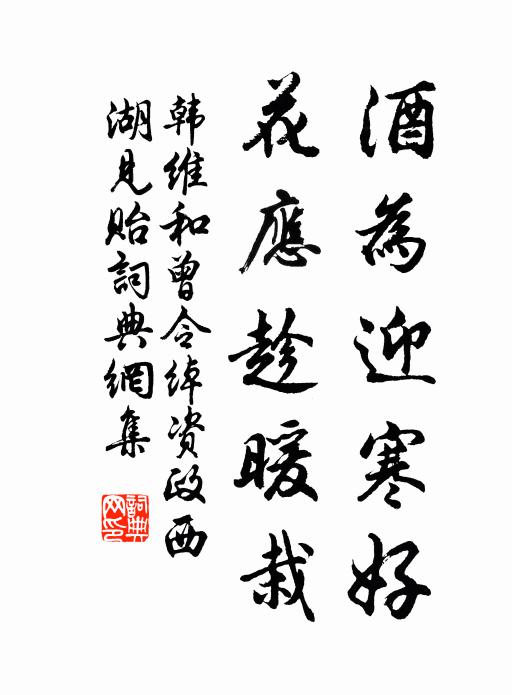 酒為迎寒好
花應趁暖栽
韩維和曾令绰资政西
湖見貽詞典網集
詞典网印